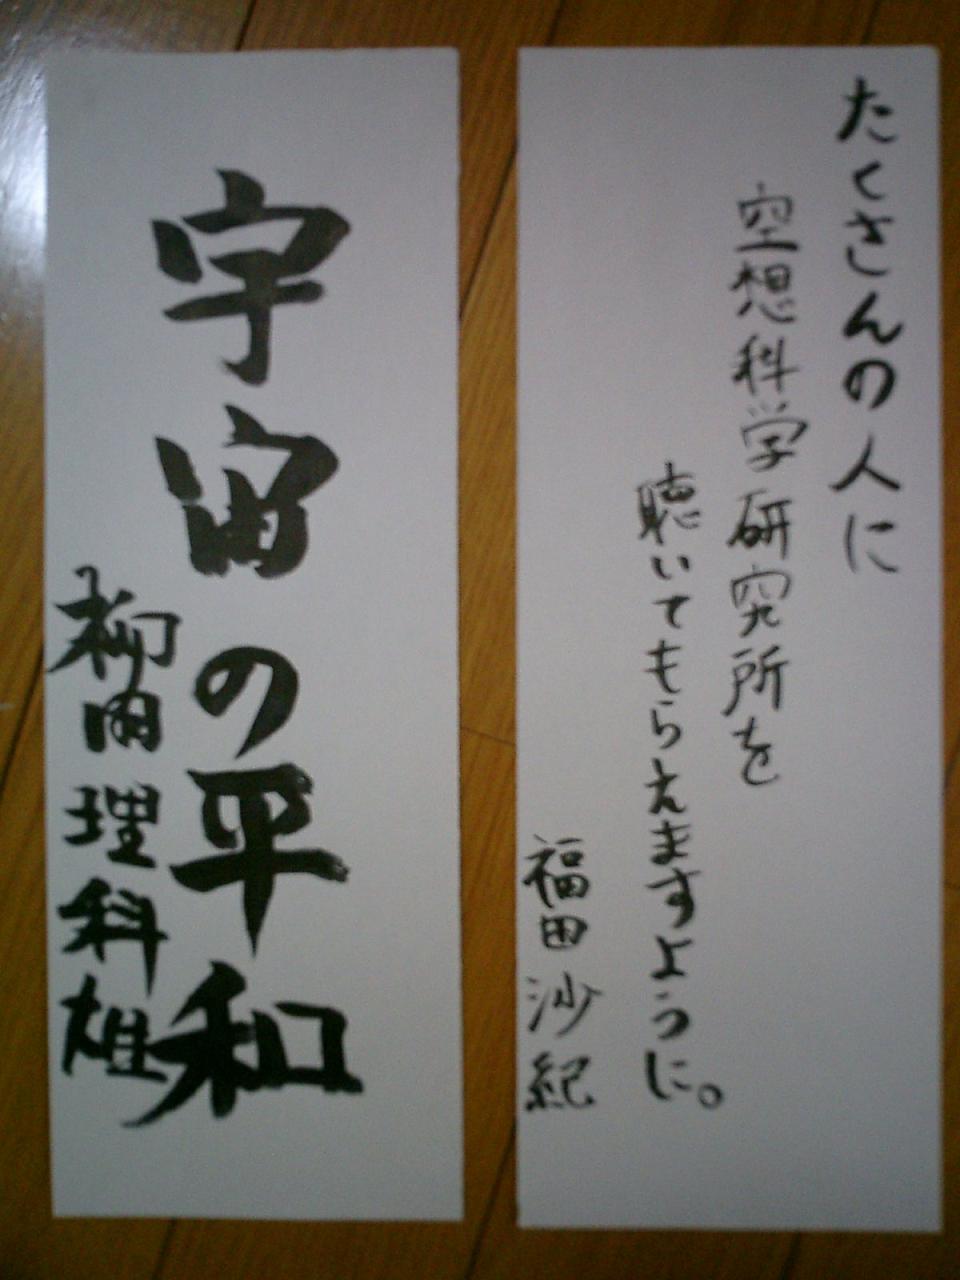 たくさんの人に
空想科学研究所を
聴いてもらえますように。
福田沙紀
宇宙の平和
柳田理科雄